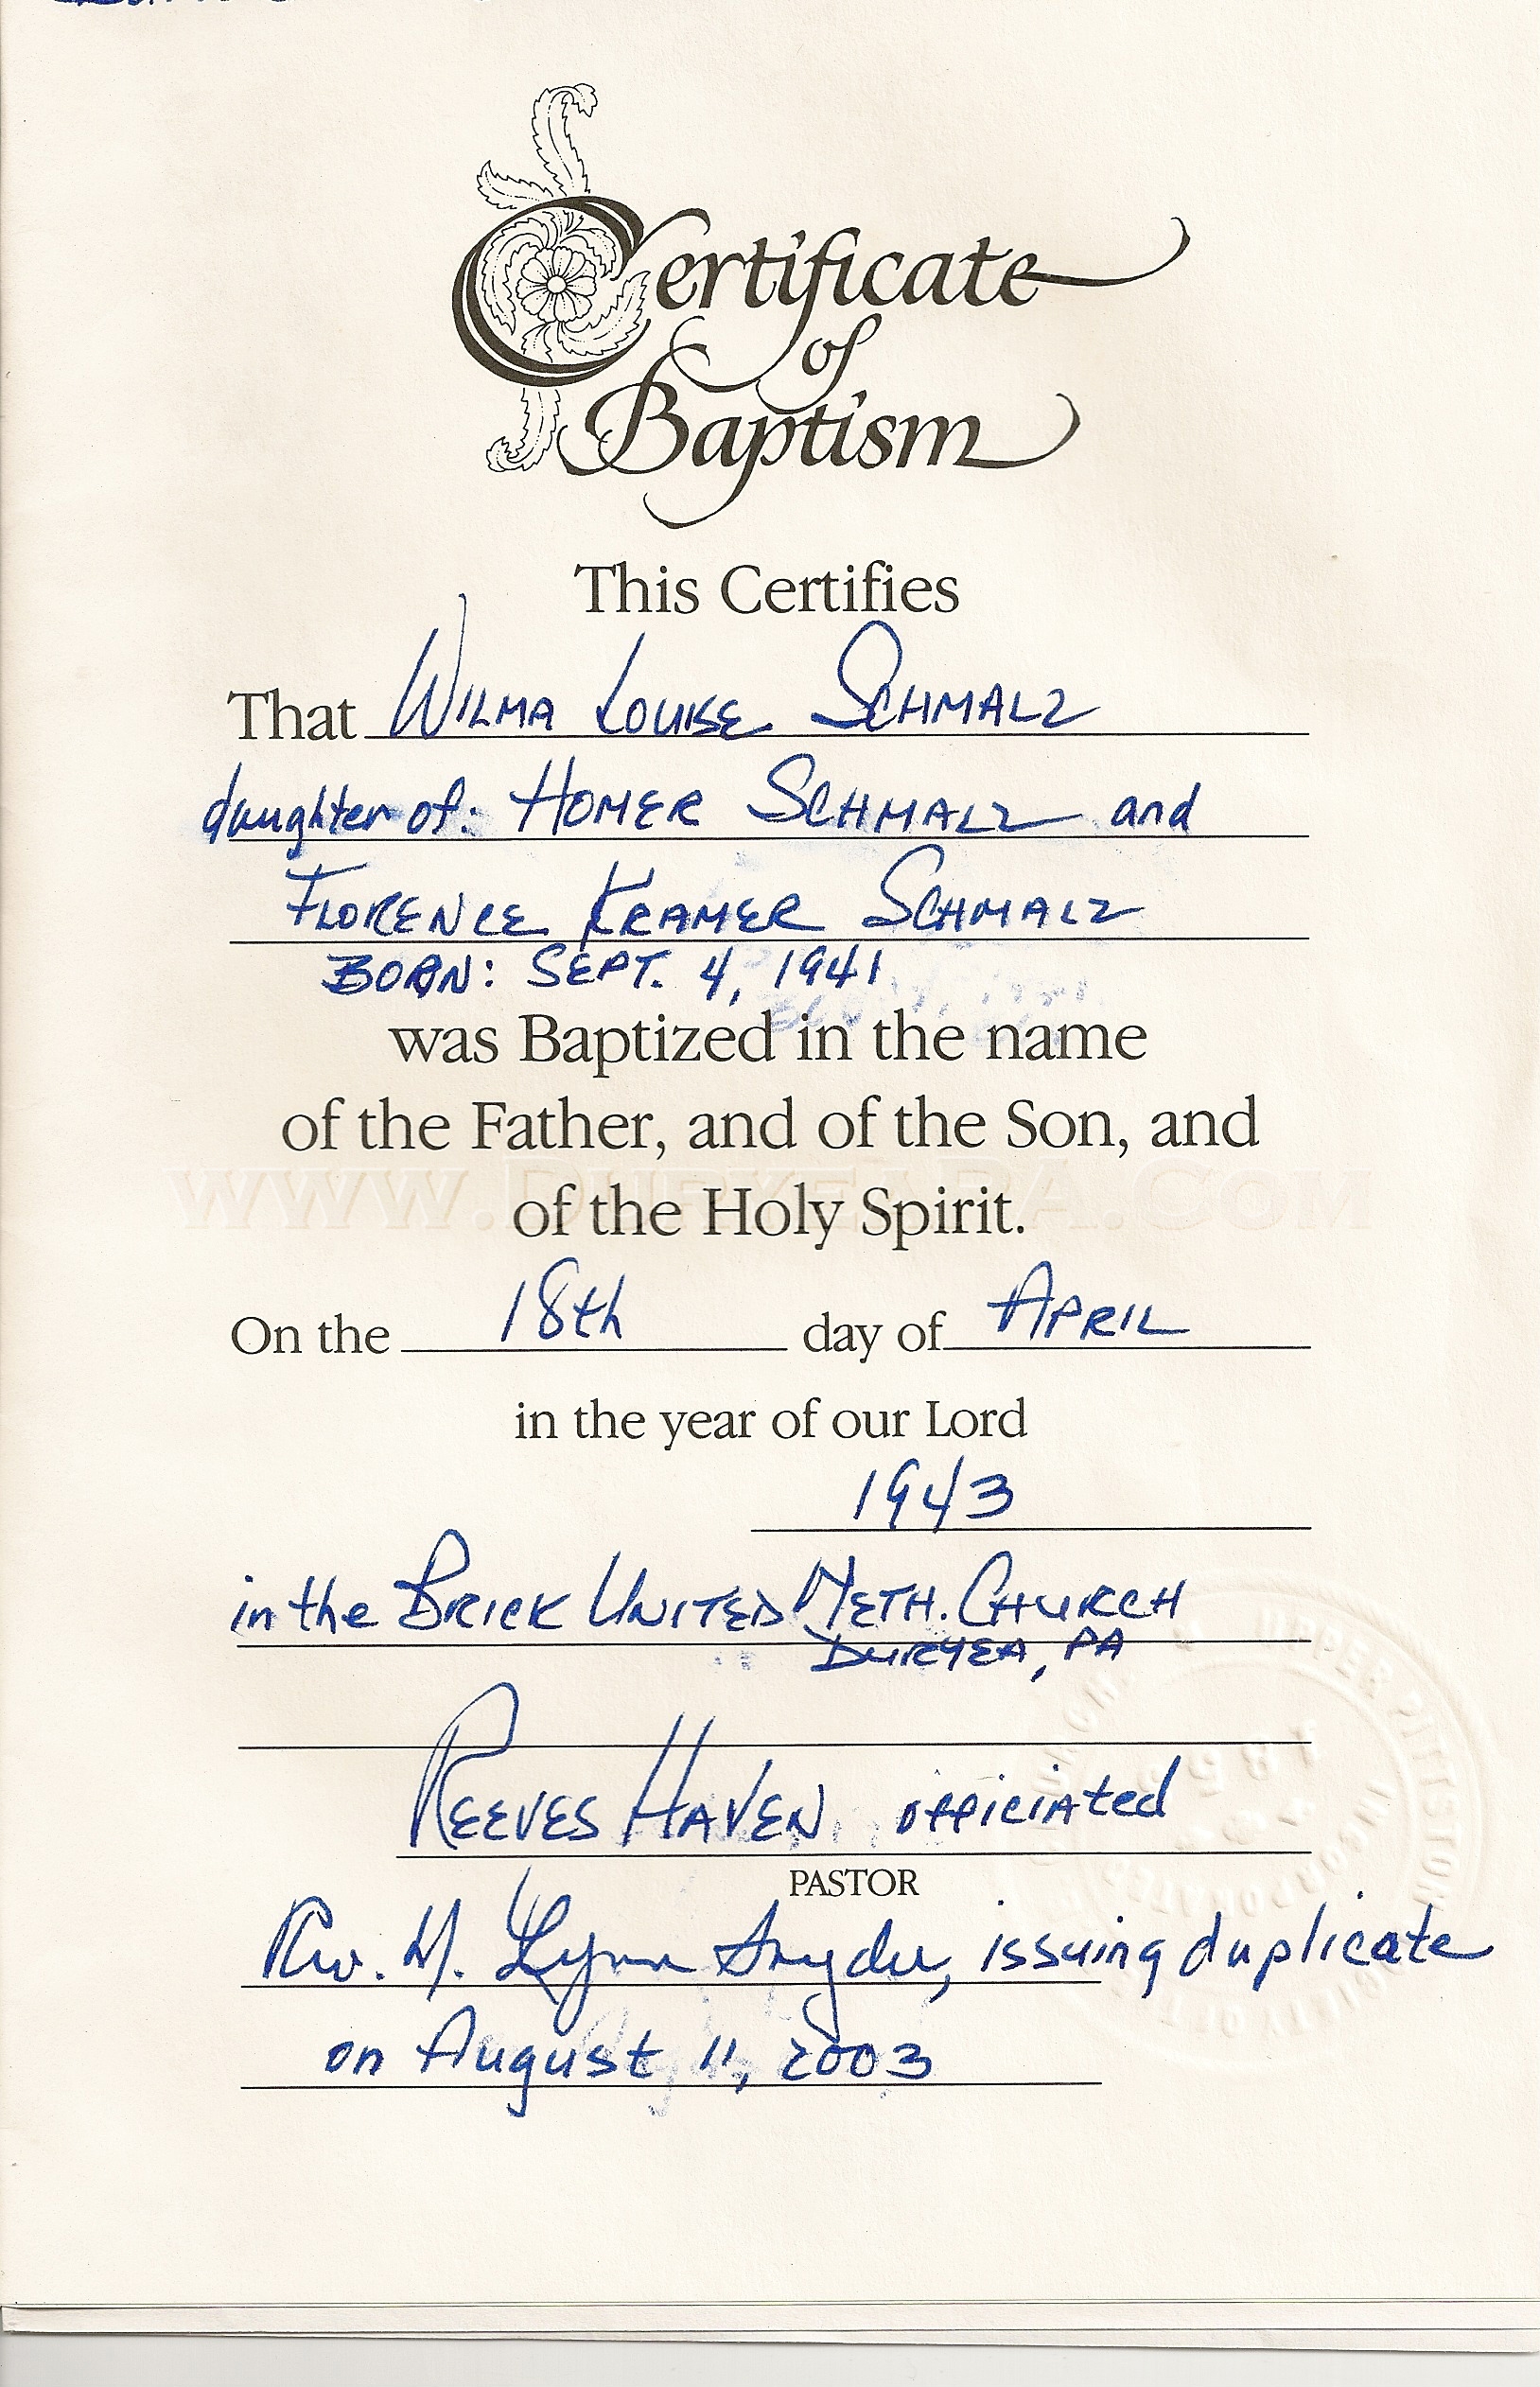 Certificate
of
Baptism
This Certifies
That WILMA LOUISE SCHMALZ
daughter of: HOMER SCHMALZ and
FLORENCE KRAMER SCHMALZ
BORN: SEPT. 4, 1941
was Baptized in the name
of the Father, and of the Son, and
www.DuryeaPA.Com
of the Holy Spirit.
On the 18th day of APRIL
in the year of our Lord
1943
in the BRICK UNITED METH. CHURCH
DURYEA, PA
REEVES HAVEN officiated
PASTOR
Rev. M. Lynn Snyder, issuing duplicate
on August 11, 2003